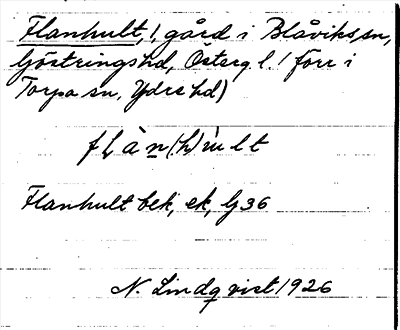 Flanhult, 1 gård i Blåviks sn,
Göstringshd, Österg l. (förr i
Torpa sn, Ydre hd)
flàn(h)ult
Flanhult bek, ek, Gj 36
N. Lindqvist 1926